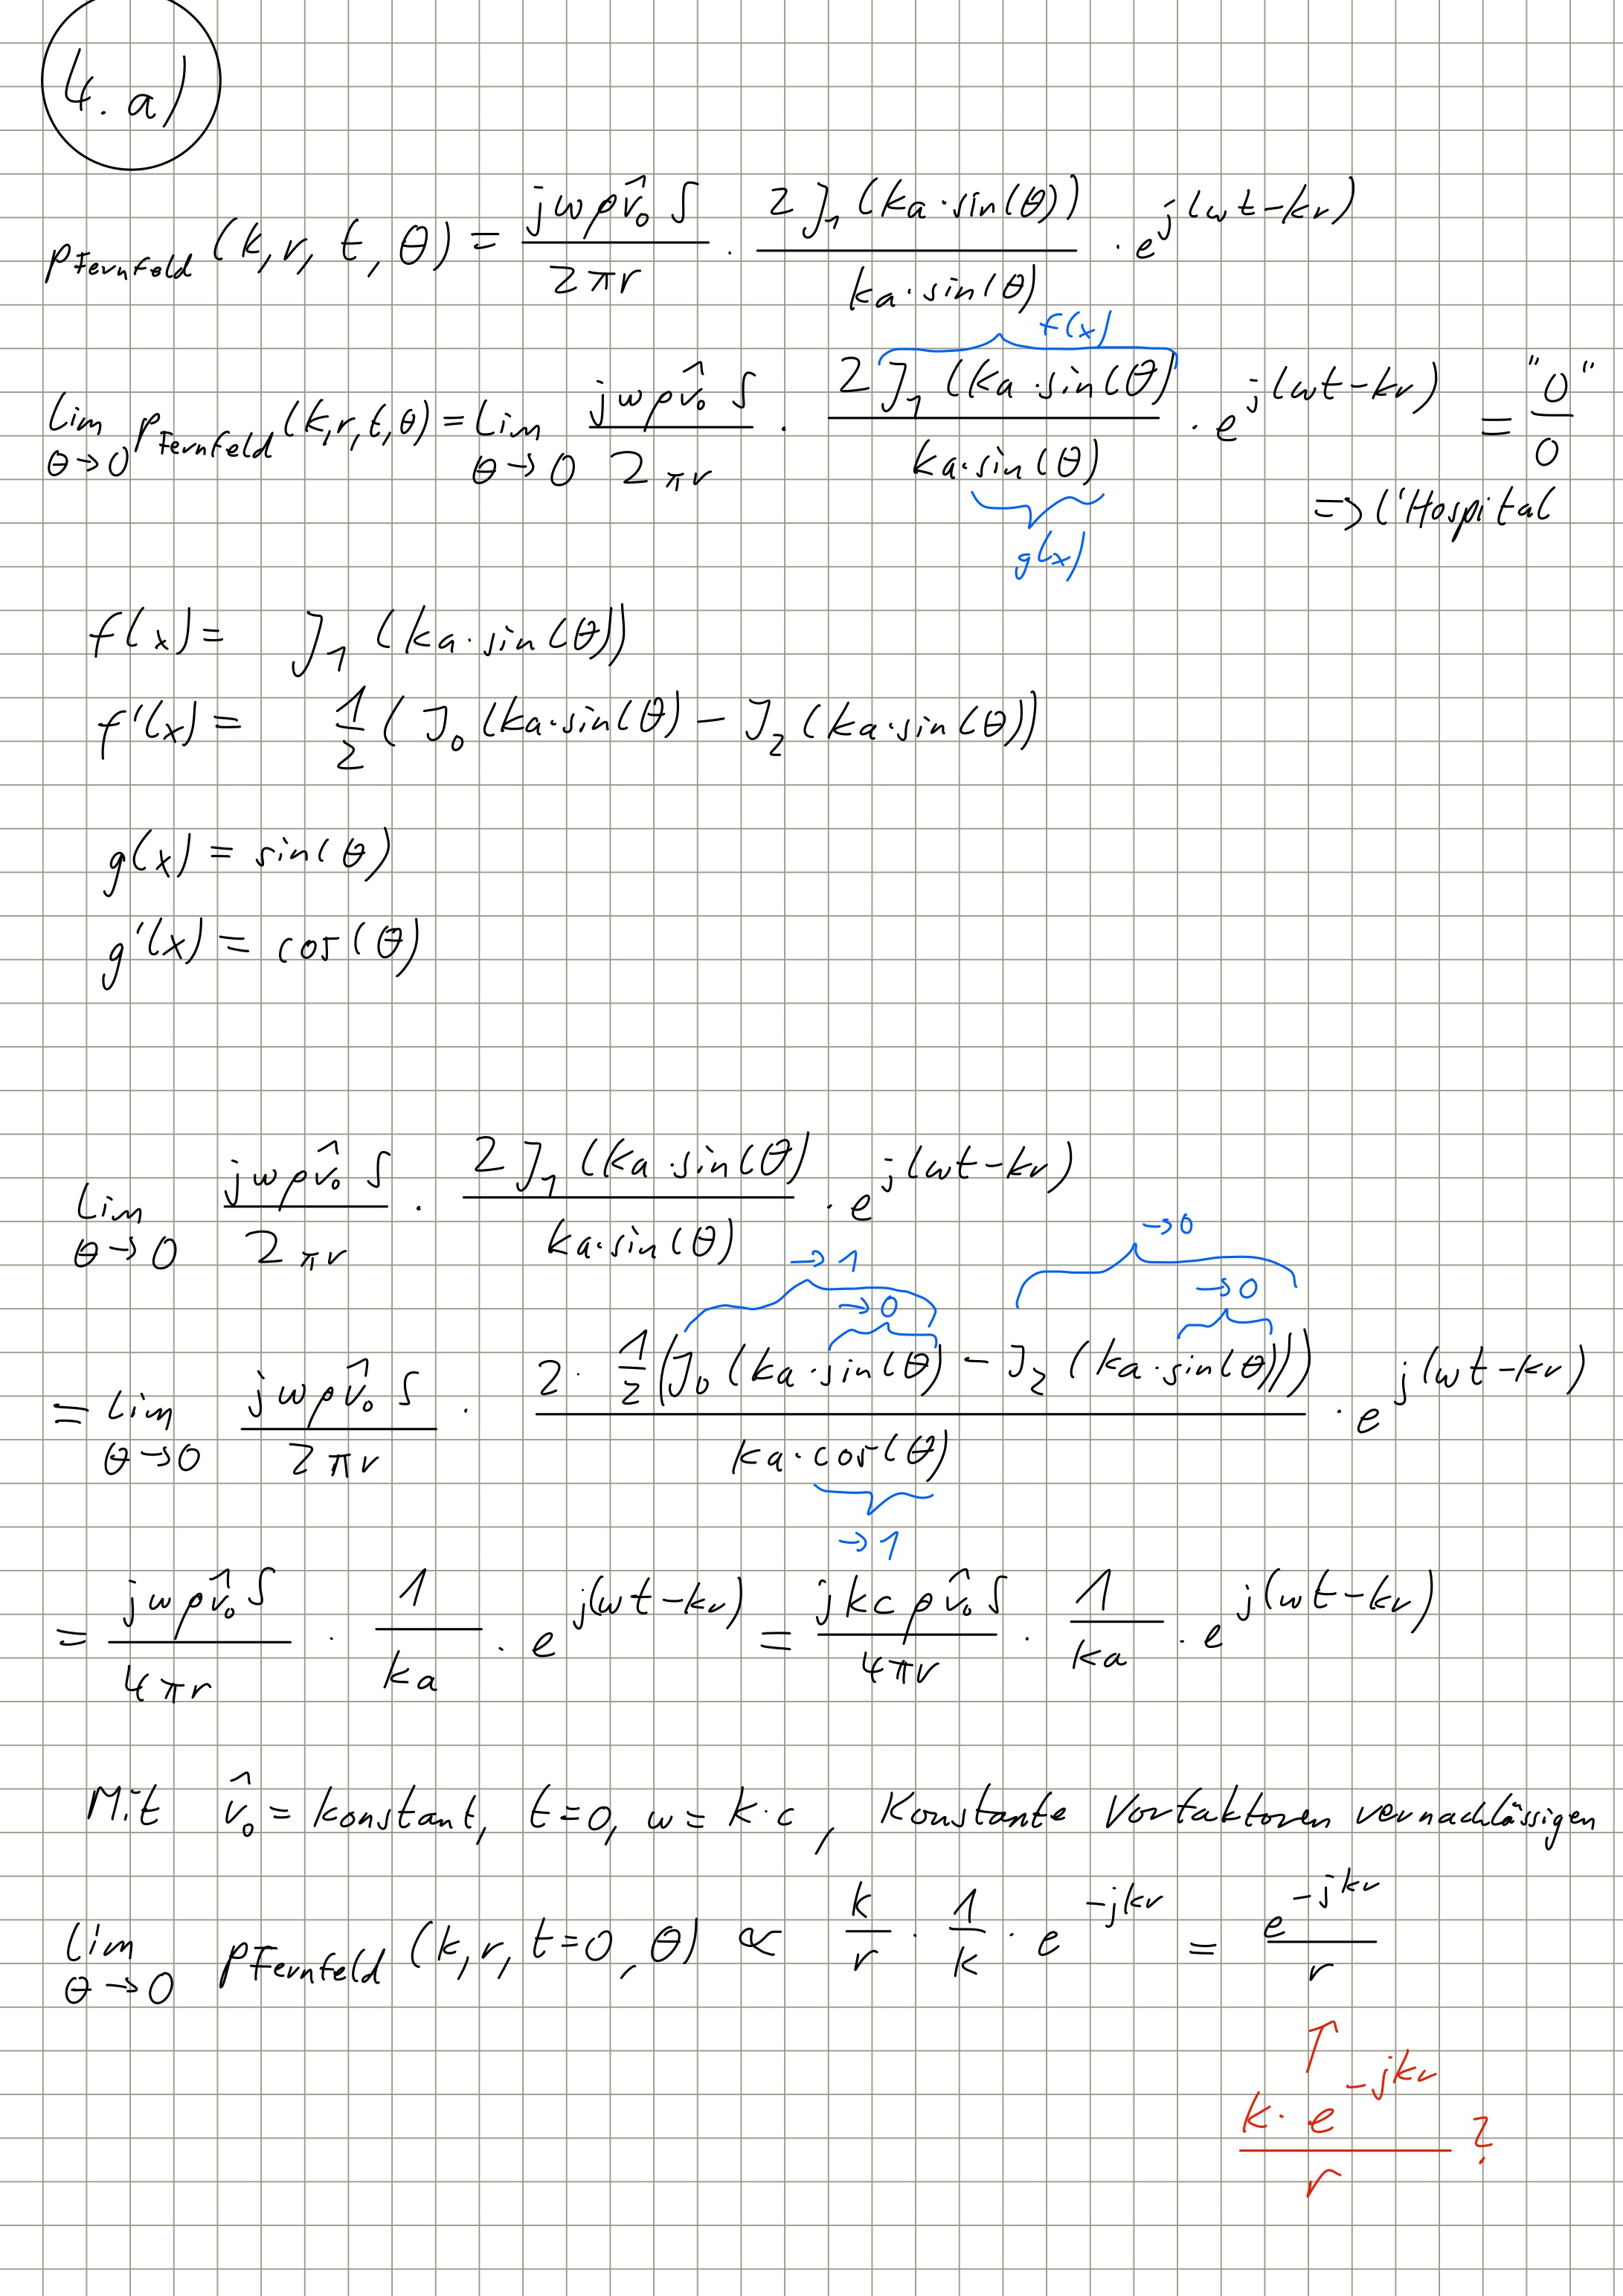 4. a)
p_Fernfeld (k, r, t, θ) = (jωρv̂₀ S)/(2πr) · (2 J₁ (ka·sin(θ)))/(ka·sin(θ)) · e^{j(ωt-kr)}
f(x)
lim_{θ→0} p_Fernfeld (k,r,t,θ) = lim_{θ→0} (jωρv̂₀ S)/(2πr) · (2J₁ (ka·sin(θ))/(ka·sin(θ)) · e^{j(ωt-kr)} = "0"/0
=> l'Hospital
g(x)
f(x) = J₁ (ka·sin(θ))
f'(x) = 1/2 ( J₀ (ka·sin(θ) - J₂ (ka·sin(θ))
g(x) = sin(θ)
g'(x) = cos(θ)
lim_{θ→0} (jωρv̂₀ S)/(2πr) · (2J₁ (ka·sin(θ))/(ka·sin(θ)) · e^{j(ωt-kr)}
→1 →0
→0 →0
= lim_{θ→0} (jωρv̂₀ S)/(2πr) · (2· 1/2 (J₀ (ka·sin(θ) - J₂ (ka·sin(θ))))/(ka·cos(θ)) · e^{j(ωt-kr)}
→1
= (jωρv̂₀ S)/(4πr) · 1/(ka) · e^{j(ωt-kr)} = (jkcρv̂₀ S)/(4πr) · 1/(ka) · e^{j(ωt-kr)}
Mit v̂₀ = konstant, t=0, ω = k·c, Konstante Vorfaktoren vernachlässigen
lim_{θ→0} p_Fernfeld (k, r, t=0, θ) ∝ k/r · 1/k · e^{-jkr} = e^{-jkr}/r
↑
(k· e^{-jkr})/r ?